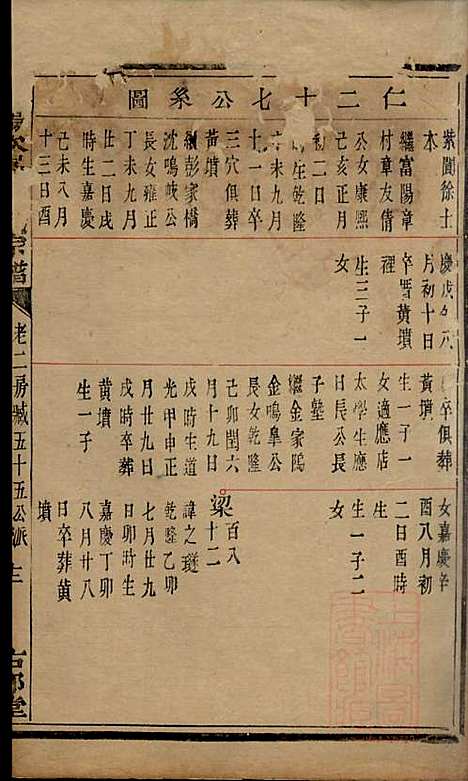 仁二十七公系圖
紫閬徐士
本
繼富陽章
村章友倩
公女康熙
己亥正月
初二日
時生乾隆
辛未九月
十一日卒
三穴俱葬
黃墳
續彭家橋
沈鳴岐公
長女雍正
丁未九月
廿二日戌
時生嘉慶
己未八月
十三日酉
慶戊午八
月初十日
卒暨黃墳
裡
生三子一
女
卒俱葬
黃墳
生一子一
女適應店
太學生應
日長公長
子塾
繼金家隖
金鳴皐公
長女乾隆
己卯閏六
月十九日
戌時生道
光甲申正
月廿九日
戌時卒葬
黃墳
生一子
女嘉慶辛
酉八月初
二日酉時
生
生一子二
女
梁
百八
十二
諱之璲
乾隆乙卯
七月廿九
日卯時生
嘉慶丁卯
八月廿八
日卒葬黃
墳
宗譜
老二房臧五十五公派